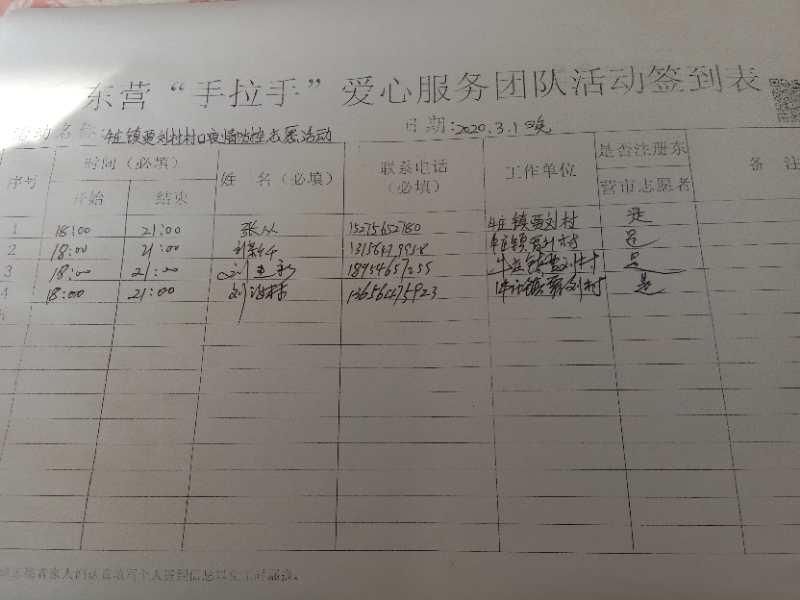 东营“手拉手”爱心服务团队活动签到表
活动名称:牛庄镇贾刘村村口疫情防控志愿活动 日期:2020.3.1晚
序号 时间(必填) 姓 名(必填) 联系电话(必填) 工作单位 是否注册东营市志愿者 备 注
开始 结束
1 18:00 21:00 15275652780 牛庄镇贾刘村 是
2 18:00 21:00 牛庄镇贾刘村 是
3 18:00 21:00 18954657255 牛庄镇贾刘村 是
4 18:00 21:00 刘 13656475923 牛庄镇贾刘村 是